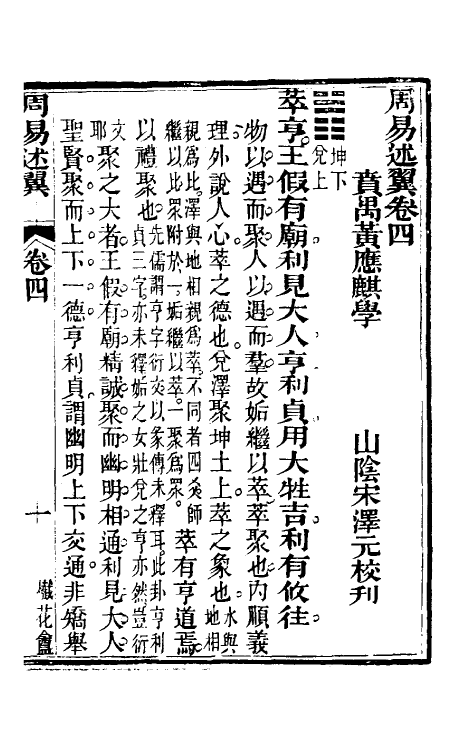 周易述翼卷四
賁禺黃應麒學　山陰宋澤元校刊
坤下
兌上
萃亨王假有廟利見大人亨利貞用大牲吉利有攸往
物以遇而聚人以遇而羣故姤繼以萃萃聚也內順義
理外說人心萃之德也兌澤聚坤土上萃之象也水與地相
親為比澤與地相視為萃不同者四爻師
繼以比眾附於一姤繼以萃一聚為眾萃有亨道焉
以禮聚也先儒謂亨字衍文以彖傳未釋耳此卦亨利
貞三字亦未釋姤之女壯兌之亨亦然豈衍
文耶聚之大者王假有廟精誠聚而幽明相通利見大人
聖賢聚而上下一德亨利貞謂幽明上下交通非矯舉
周易述翼
卷四
十
懺花盦